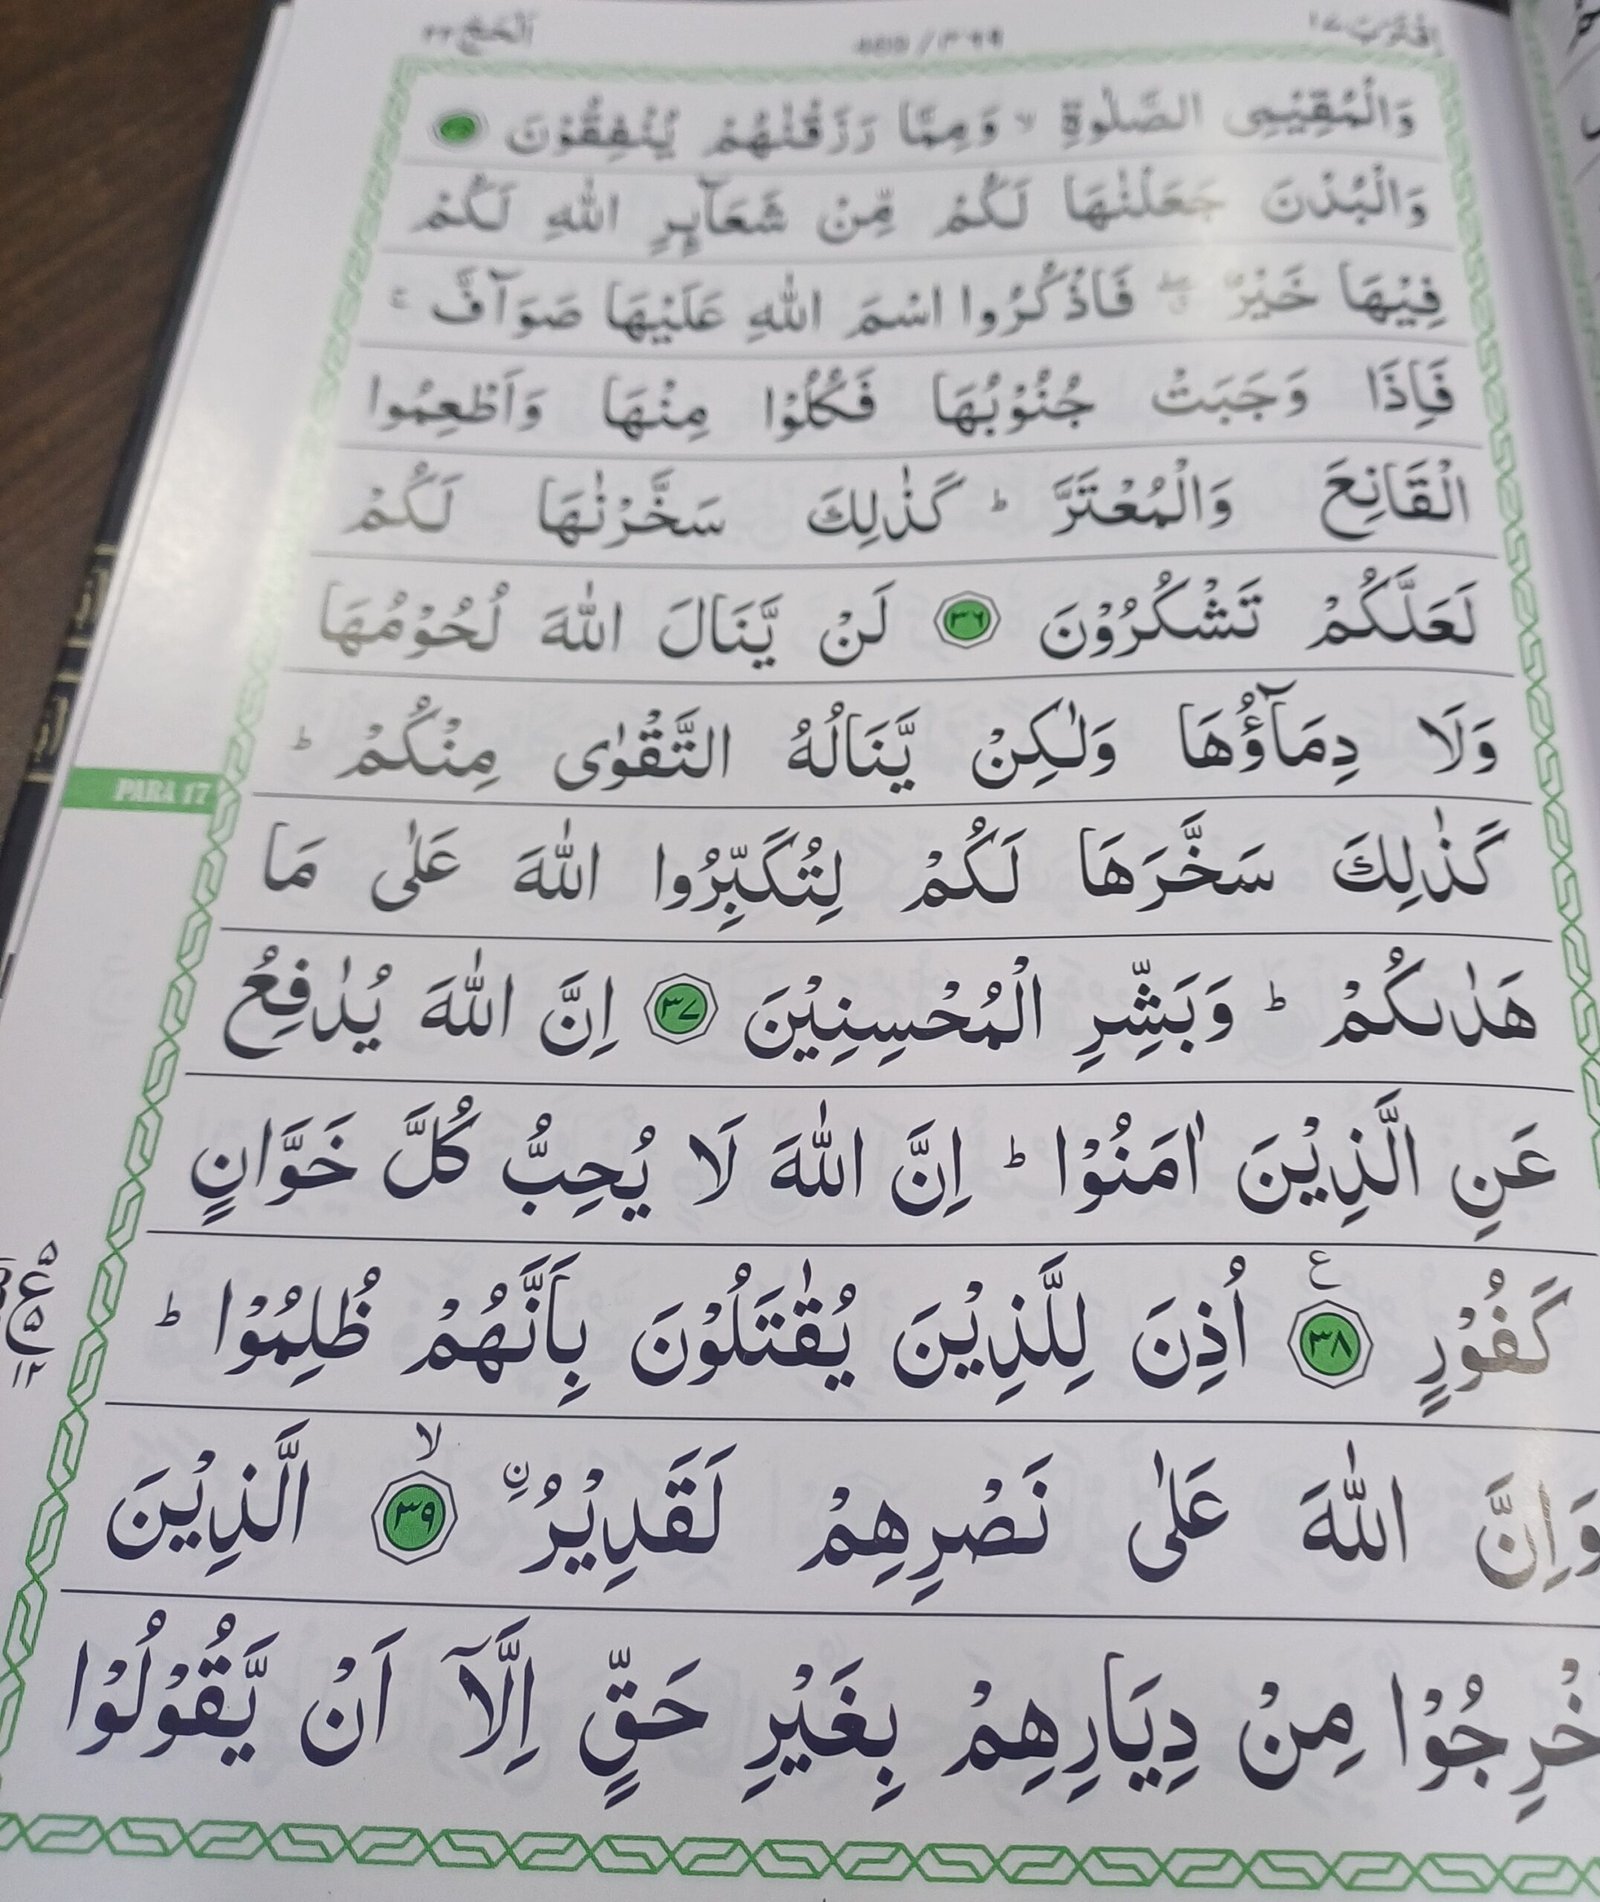 اِقْتَرَبَ ١٧
اَلْحَجّ ٢٢
وَالْمُقِيْمِى الصَّلٰوةِ ۙ وَمِمَّا رَزَقْنٰهُمْ يُنْفِقُوْنَ
وَالْبُدْنَ جَعَلْنٰهَا لَكُمْ مِّنْ شَعَآئِرِ اللّٰهِ لَكُمْ
فِيْهَا خَيْرٌ ۖ فَاذْكُرُوا اسْمَ اللّٰهِ عَلَيْهَا صَوَآفَّ ۚ
فَاِذَا وَجَبَتْ جُنُوْبُهَا فَكُلُوْا مِنْهَا وَاَطْعِمُوا
الْقَانِعَ وَالْمُعْتَرَّ ؕ كَذٰلِكَ سَخَّرْنٰهَا لَكُمْ
لَعَلَّكُمْ تَشْكُرُوْنَ ٣٦ لَنْ يَّنَالَ اللّٰهَ لُحُوْمُهَا
وَلَا دِمَآؤُهَا وَلٰكِنْ يَّنَالُهُ التَّقْوٰى مِنْكُمْ ؕ
PARA 17
كَذٰلِكَ سَخَّرَهَا لَكُمْ لِتُكَبِّرُوا اللّٰهَ عَلٰى مَا
هَدٰىكُمْ ؕ وَبَشِّرِ الْمُحْسِنِيْنَ ٣٧ اِنَّ اللّٰهَ يُدٰفِعُ
عَنِ الَّذِيْنَ اٰمَنُوْا ؕ اِنَّ اللّٰهَ لَا يُحِبُّ كُلَّ خَوَّانٍ
كَفُوْرٍ ٣٨ ع اُذِنَ لِلَّذِيْنَ يُقٰتَلُوْنَ بِاَنَّهُمْ ظُلِمُوْا ؕ
٥ ع ٥ ١٢
وَاِنَّ اللّٰهَ عَلٰى نَصْرِهِمْ لَقَدِيْرُ ۨ ٣٩ ۙ الَّذِيْنَ
خْرِجُوْا مِنْ دِيَارِهِمْ بِغَيْرِ حَقٍّ اِلَّآ اَنْ يَّقُوْلُوْا